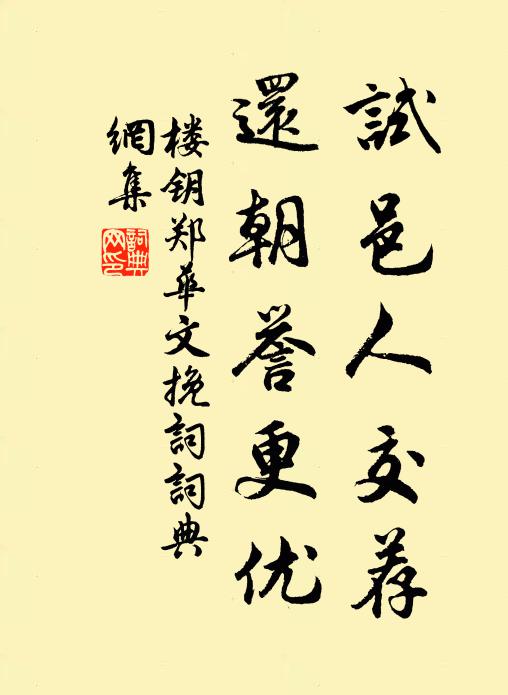 試邑人交荐
還朝誉更优
楼钥郑华文挽詞詞典
網集
詞典网印